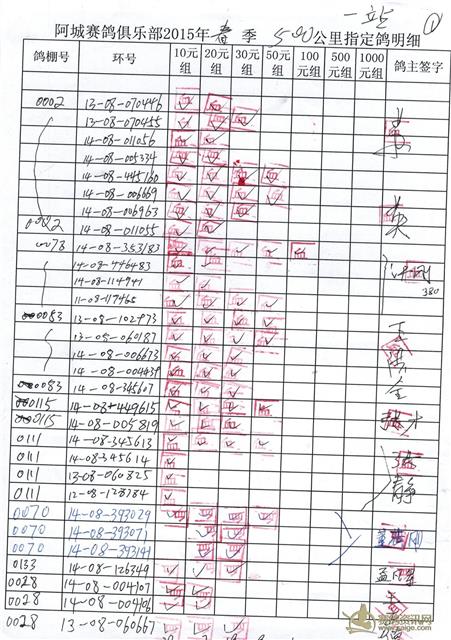 一站 ①
阿城赛鸽俱乐部2015年春季500公里指定鸽明细
鸽棚号 环号 10元组 20元组 30元组 50元组 100元组 500元组 1000元组 鸽主签字
0002 13-08-070446 ✓ ✓
13-08-070455 ✓ ✓ ✓
14-08-011056 ✓ ✓
14-08-005334 ✓ ✓
14-08-445160 ✓ ✓ ✓ ✓
14-08-006669 ✓ ✓ ✓ ✓
14-08-006963 ✓ ✓ ✓
0002 14-08-011055 ✓ ✓
0078 14-08-353183 ✓ ✓ ✓ ✓ ✓
14-08-446483
14-08-114941
11-08-117465 ✓ ✓ ✓ ✓
380
0083 13-08-102973 ✓ ✓ ✓ ✓
13-05-060187 ✓ ✓ ✓ ✓
14-08-006673 ✓ ✓ ✓
14-08-004439 ✓ ✓ ✓
0083 14-08-345607 ✓ ✓ ✓
0115 14-08-449615 ✓ ✓ ✓ ✓
0115 14-08-005819 ✓ ✓ ✓
0111 14-08-345613 ✓ ✓ ✓ ✓
0111 14-08-345614 ✓
0111 13-08-060825 ✓
0111 12-08-128784 ✓
0070 14-08-393029 ✓ ✓ ✓ ✓
0070 14-08-393071 ✓ ✓
0070 14-08-393191 ✓ ✓
0133 14-08-126349 ✓ ✓ ✓
0028 14-08-004107 ✓ ✓
0028 14-08-004106 ✓ ✓
0028 13-08-060667